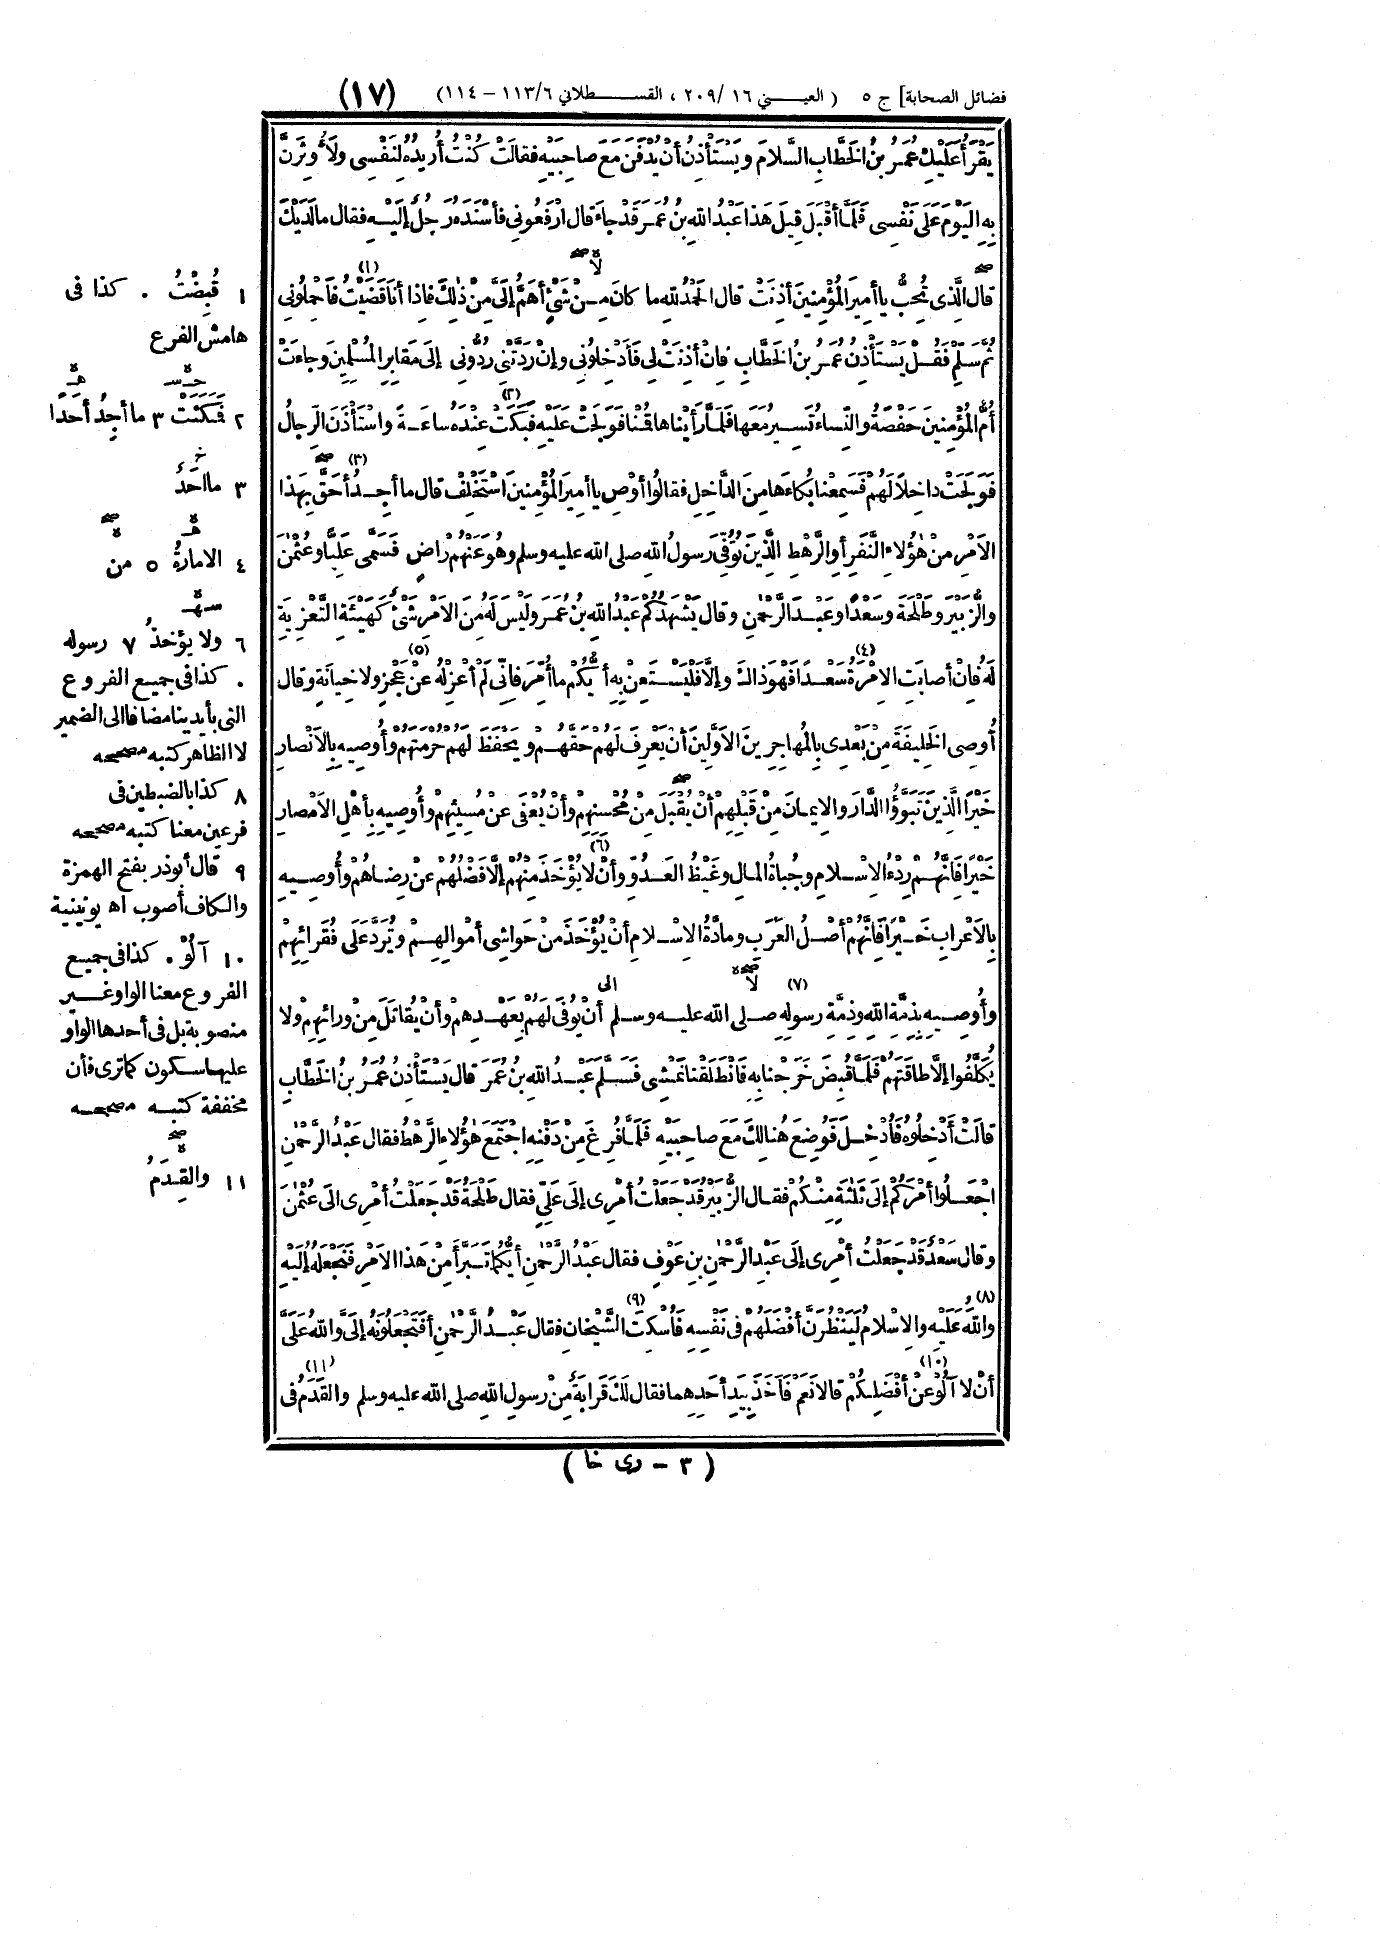 فضائل الصحابة] ج ٥ ( العيني ١٦ /٢٠٩ ، القسطلاني ٦/ ١١٣ - ١١٤) (١٧)
يَقْرَأُ عَلَيْكِ عُمَرُ بنُ الخَطَّابِ السَّلامَ ويَسْتَأْذِنُ أنْ يُدْفَنَ مَعَ صاحِبَيْهِ فقالَتْ كُنْتُ أُرِيدُهُ لِنَفْسِى ولَأُوثِرَنَّ
بِهِ اليَوْمَ عَلَى نَفْسِى فَلَمَّا أقْبَلَ قِيلَ هَذا عَبْدُ اللهِ بنُ عُمَرَ قَدْ جاءَ قال ارْفَعُونِى فأسْنَدَهُ رَجُلٌ إلَيْهِ فقال ما لَدَيْكَ
قال الَّذِى تُحِبُّ يا أمِيرَ المُؤْمِنِينَ أذِنَتْ قال الحَمْدُ للهِ ما كانَ مِنْ شَىْءٍ أهَمُّ إلَىَّ مِنْ ذٰلِكَ فإذا أنا قَضَيْتُ (١) فَاحْمِلُونِى
ثُمَّ سَلِّمْ فَقُلْ يَسْتَأْذِنُ عُمَرُ بنُ الخَطَّابِ فإنْ أذِنَتْ لِى فَأدْخِلُونِى وإنْ رَدَّتْنِى رُدُّونِى إلَى مَقابِرِ المُسْلِمِينَ وجاءَتْ
أُمُّ المُؤْمِنِينَ حَفْصَةُ والنِّساءُ تَسِيرُ مَعَها فَلَمَّا رَأيْناها قُمْنا فَوَلَجَتْ عَلَيْهِ فَبَكَتْ (٢) عِنْدَهُ ساعَةً واسْتَأْذَنَ الرِّجالُ
فَوَلَجَتْ داخِلاً لَهُمْ فَسَمِعْنا بُكاءَها مِنَ الدَّاخِلِ فقالُوا أوْصِ يا أمِيرَ المُؤْمِنِينَ اسْتَخْلِفْ قال ما أجِدُ (٣) أحَقَّ بِهَذا
الأمْرِ مِنْ هٰؤُلاءِ النَّفَرِ أوِ الرَّهْطِ الَّذِينَ تُوُفِّىَ رَسولُ اللهِ صلى الله عليه وسلم وهُوَ عَنْهُمْ راضٍ فَسَمَّى عَلِيًّا وعُثْمٰنَ
والزُّبَيْرَ وطَلْحَةَ وسَعْدًا وعَبْدَ الرَّحْمٰنِ وقال يَشْهَدُكُمْ عَبْدُ اللهِ بنُ عُمَرَ ولَيْسَ لَهُ مِنَ الأمْرِ شَىْءٌ كَهَيْئَةِ التَّعْزِيَةِ
لَهُ فإنْ أصابَتِ الإمْرَةُ (٤) سَعْدًا فَهْوَ ذاكَ وإلَّا فَلْيَسْتَعِنْ بِهِ أيُّكُمْ ما أُمِّرَ فإنِّى لَمْ أعْزِلْهُ عنْ (٥) عَجْزٍ ولا خِيانَةٍ وقال
أُوصِى الخَلِيفَةَ مِنْ بَعْدِى بِالمُهاجِرِينَ الأوَّلِينَ أنْ يَعْرِفَ لَهُمْ حَقَّهُمْ ويَحْفَظَ لَهُمْ حُرْمَتَهُمْ وأُوصِيهِ بِالأنْصارِ
خَيْرًا الَّذِينَ تَبَوَّؤُا الدَّارَ والإيمانَ مِنْ قَبْلِهِمْ أنْ يُقْبَلَ مِنْ مُحْسِنِهِمْ وأنْ يُعْفَى عنْ مُسِيئِهِمْ وأُوصِيهِ بِأهْلِ الأمْصارِ
خَيْرًا فَإنَّهُمْ رِدْءُ الإسْلامِ وجُباةُ المالِ وغَيْظُ العَدُوِّ وأنْ لا يُؤْخَذَ (٦) مِنْهُمْ إلَّا فَضْلُهُمْ عنْ رِضاهُمْ وأُوصِيهِ
بِالأعْرابِ خَيْرًا فَإنَّهُمْ أصْلُ العَرَبِ ومادَّةُ الإسْلامِ أنْ يُؤْخَذَ مِنْ حَواشِى أمْوالِهِمْ وتُرَدَّ عَلَى فُقَرائِهِمْ
وأُوصِيهِ بِذِمَّةِ اللهِ وذِمَّةِ رسولِهِ (٧) صلى الله عليه وسلم أنْ يُوفَى لَهُمْ بِعَهْدِهِمْ وأنْ يُقاتَلَ مِنْ ورائِهِمْ ولا
يُكَلَّفُوا إلَّا طاقَتَهُمْ فَلَمَّا قُبِضَ خَرَجْنا بِهِ فَانْطَلَقْنا نَمْشِى فَسَلَّمَ عَبْدُ اللهِ بنُ عُمَرَ قال يَسْتَأْذِنُ عُمَرُ بنُ الخَطَّابِ
قالَتْ أدْخِلُوهُ فَأُدْخِلَ فَوُضِعَ هُنالِكَ مَعَ صاحِبَيْهِ فَلَمَّا فُرِغَ مِنْ دَفْنِهِ اجْتَمَعَ هٰؤُلاءِ الرَّهْطُ فقال عَبْدُ الرَّحْمٰنِ
اجْعَلُوا أمْرَكُمْ إلَى ثَلٰثَةٍ مِنْكُمْ فقال الزُّبَيْرُ قَدْ جَعَلْتُ أمْرِى إلَى عَلِىٍّ فقال طَلْحَةُ قَدْ جَعَلْتُ أمْرِى الَى عُثْمٰنَ
وقال سَعْدٌ قَدْ جَعَلْتُ أمْرِى إلَى عَبْدِ الرَّحْمٰنِ بنِ عَوْفٍ فقال عَبْدُ الرَّحْمٰنِ أيُّكُما تَبَرَّأَ مِنْ هَذا الأمْرِ فَنَجْعَلُهُ إلَيْهِ
واللهُ (٨) عَلَيْهِ والإسْلامُ لَيَنْظُرَنَّ أفْضَلَهُمْ فى نَفْسِهِ فَأُسْكِتَ (٩) الشَّيْخانِ فقال عَبْدُ الرَّحْمٰنِ أفَتَجْعَلُونَهُ إلَىَّ واللهُ عَلَىَّ
أنْ لا آلُوْ (١٠) عنْ أفْضَلِكُمْ قالا نَعَمْ فَأخَذَ بِيَدِ أحَدِهِما فقال لَكَ قَرابَةٌ مِنْ رسولِ اللهِ صلى الله عليه وسلم والقَدَمُ (١١) فى
(٣ - رى خا)
١ قُبِضْتُ . كذا فى
هامش الفرع
٢ فَمَكَثَتْ ٣ ما أجِدُ أحَدًا
٣ ما أحَدٌ
٤ الامارةُ ٥ من
٦ ولا يؤخذُ ٧ رسوله
. كذا فى جميع الفروع
التى بأيدينا مضافا الى الضمير
لا الظاهر كتبه مصححه
٨ كذا بالضبطين فى
فرعين معنا كتبه مصححه
٩ قال أبوذر بفتح الهمزة
والكاف أصوب اه يونينية
١٠ آلُوْ . كذا فى جميع
الفروع معنا الواو غير
منصوبة بل فى أحدها الواو
عليها سكون كما ترى فأن
مخففة كتبه مصححه
١١ والقِدَمُ